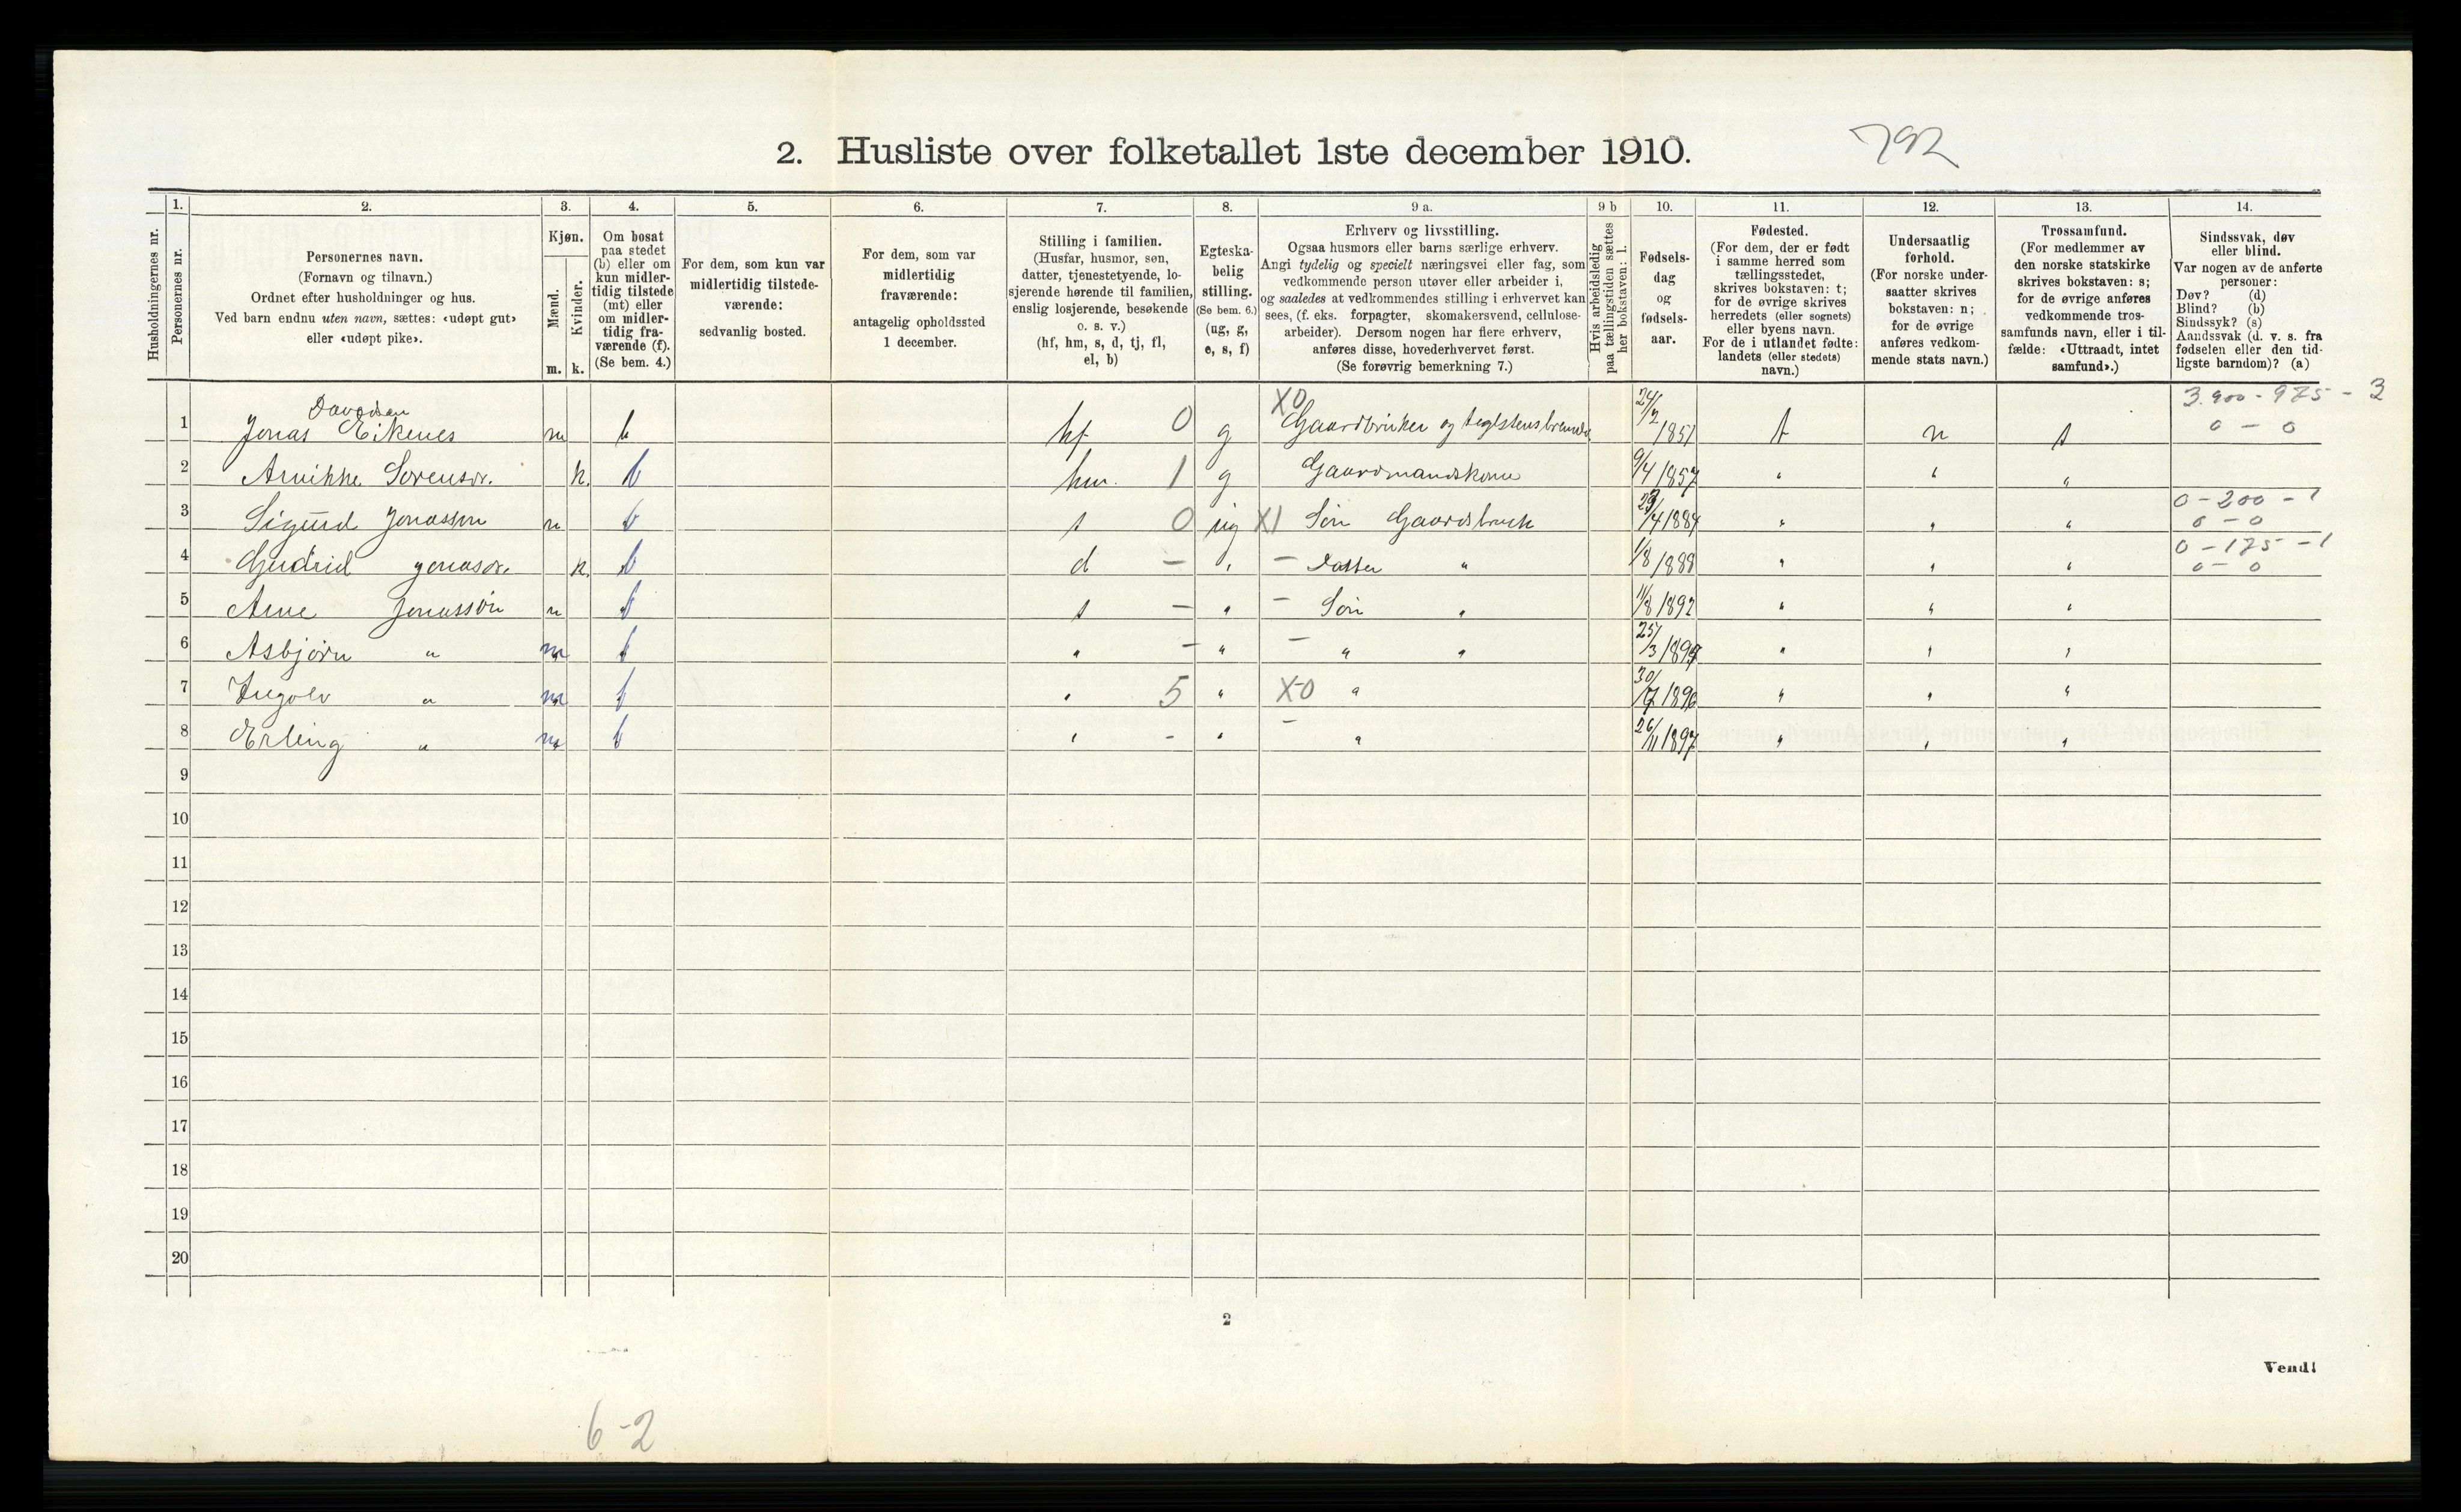 2. Husliste over folketallet 1ste december 1910.
792
Husholdningernes nr.
1.
Personernes nr.
2.
Personernes navn.
(Fornavn og tilnavn.)
Ordnet efter husholdninger og hus.
Ved barn endnu uten navn, sættes: «udøpt gut»
eller «udøpt pike».
3.
Kjøn.
Mænd.
Kvinder.
m. k.
4.
Om bosat
paa stedet
(b) eller om
kun midler-
tidig tilstede
(mt) eller
om midler-
tidig fra-
værende (f).
(Se bem. 4.)
5.
For dem, som kun var
midlertidig tilstede-
værende:
sedvanlig bosted.
6.
For dem, som var
midlertidig
fraværende:
antagelig opholdssted
1 december.
7.
Stilling i familien.
(Husfar, husmor, søn,
datter, tjenestetyende, lo-
sjerende hørende til familien,
enslig losjerende, besøkende
o. s. v.)
(hf, hm, s, d, tj, fl,
el, b)
8.
Egteska-
belig
stilling.
(Se bem. 6.)
(ug, g,
e, s, f)
9 a.
Erhverv og livsstilling.
Ogsaa husmors eller barns særlige erhverv.
Angi tydelig og specielt næringsvei eller fag, som
vedkommende person utøver eller arbeider i,
og saaledes at vedkommendes stilling i erhvervet kan
sees, (f. eks. forpagter, skomakersvend, cellulose-
arbeider). Dersom nogen har flere erhverv,
anføres disse, hovederhvervet først.
(Se forøvrig bemerkning 7.)
9 b
Hvis arbeidsledig
paa tællingstiden sættes
her bokstaven: l.
10.
Fødsels-
dag
og
fødsels-
aar.
11.
Fødested.
(For dem, der er født
i samme herred som
tællingsstedet,
skrives bokstaven: t;
for de øvrige skrives
herredets (eller sognets)
eller byens navn.
For de i utlandet fødte:
landets (eller stedets)
navn.)
12.
Undersaatlig
forhold.
(For norske under-
saatter skrives
bokstaven: n;
for de øvrige
anføres vedkom-
mende stats navn.)
13.
Trossamfund.
(For medlemmer av
den norske statskirke
skrives bokstaven: s;
for de øvrige anføres
vedkommende tros-
samfunds navn, eller i til-
fælde: «Uttraadt, intet
samfund».)
14.
Sindssvak, døv
eller blind.
Var nogen av de anførte
personer:
Døv? (d)
Blind? (b)
Sindssyk? (s)
Aandssvak (d. v. s. fra
fødselen eller den tid-
ligste barndom)? (a)
Davidsen X0 3.900 - 975 - 3
1 Jonas Eikenes m b hf 0 g Gaardbruker og teglstensbrender 24/2 1851 t n s 0 - 0
2 Annikke Sørensdr. k. b hm. 1 g Gaardmandskone 9/4 1857 " " "
0 - 200 - 1
3 Sigurd Jonassøn m b s 0 ug X1 Søn Gaardsbruk 23/4 1884 " " " 0 - 0
0 - 175 - 1
4 Gudrid Jonasdr. k. b d - " - Datter " 1/8 1888 " " " 0 - 0
5 Arne Jonassøn m b s - " - Søn " 11/8 1892 " " "
6 Asbjørn " m b " - " - " " 25/3 1894 " " "
7 Ingolv " m b " 5 " X0 " 30/7 1896 " " "
8 Erling " m b " - " - " 26/11 1897 " " "
9
10
11
12
13
14
15
16
17
18
19
20
2
Vend!
6-2